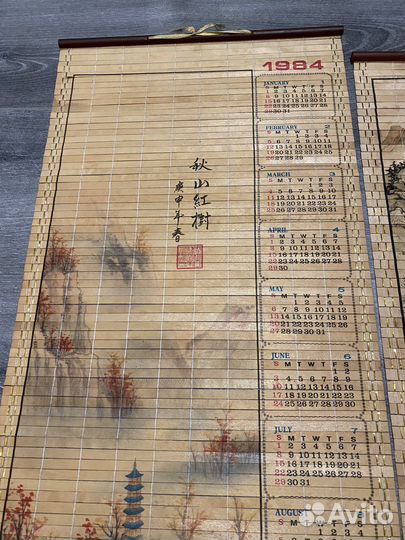 1984
秋山紅樹
庚申年春
JANUARY 1
S M T W T F S
1 2 3 4 5 6 7
8 9 10 11 12 13 14
15 16 17 18 19 20 21
22 23 24 25 26 27 28
29 30 31
FEBRUARY 2
S M T W T F S
1 2 3 4
5 6 7 8 9 10 11
12 13 14 15 16 17 18
19 20 21 22 23 24 25
26 27 28 29
MARCH 3
S M T W T F S
1 2 3
4 5 6 7 8 9 10
11 12 13 14 15 16 17
18 19 20 21 22 23 24
25 26 27 28 29 30 31
APRIL 4
S M T W T F S
1 2 3 4 5 6 7
8 9 10 11 12 13 14
15 16 17 18 19 20 21
22 23 24 25 26 27 28
29 30
MAY 5
S M T W T F S
1 2 3 4 5
6 7 8 9 10 11 12
13 14 15 16 17 18 19
20 21 22 23 24 25 26
27 28 29 30 31
JUNE 6
S M T W T F S
1 2
3 4 5 6 7 8 9
10 11 12 13 14 15 16
17 18 19 20 21 22 23
24 25 26 27 28 29 30
JULY 7
S M T W T F S
1 2 3 4 5 6 7
8 9 10 11 12 13 14
15 16 17 18 19 20 21
22 23 24 25 26 27 28
29 30 31
AUGUST
S M T W
Avito